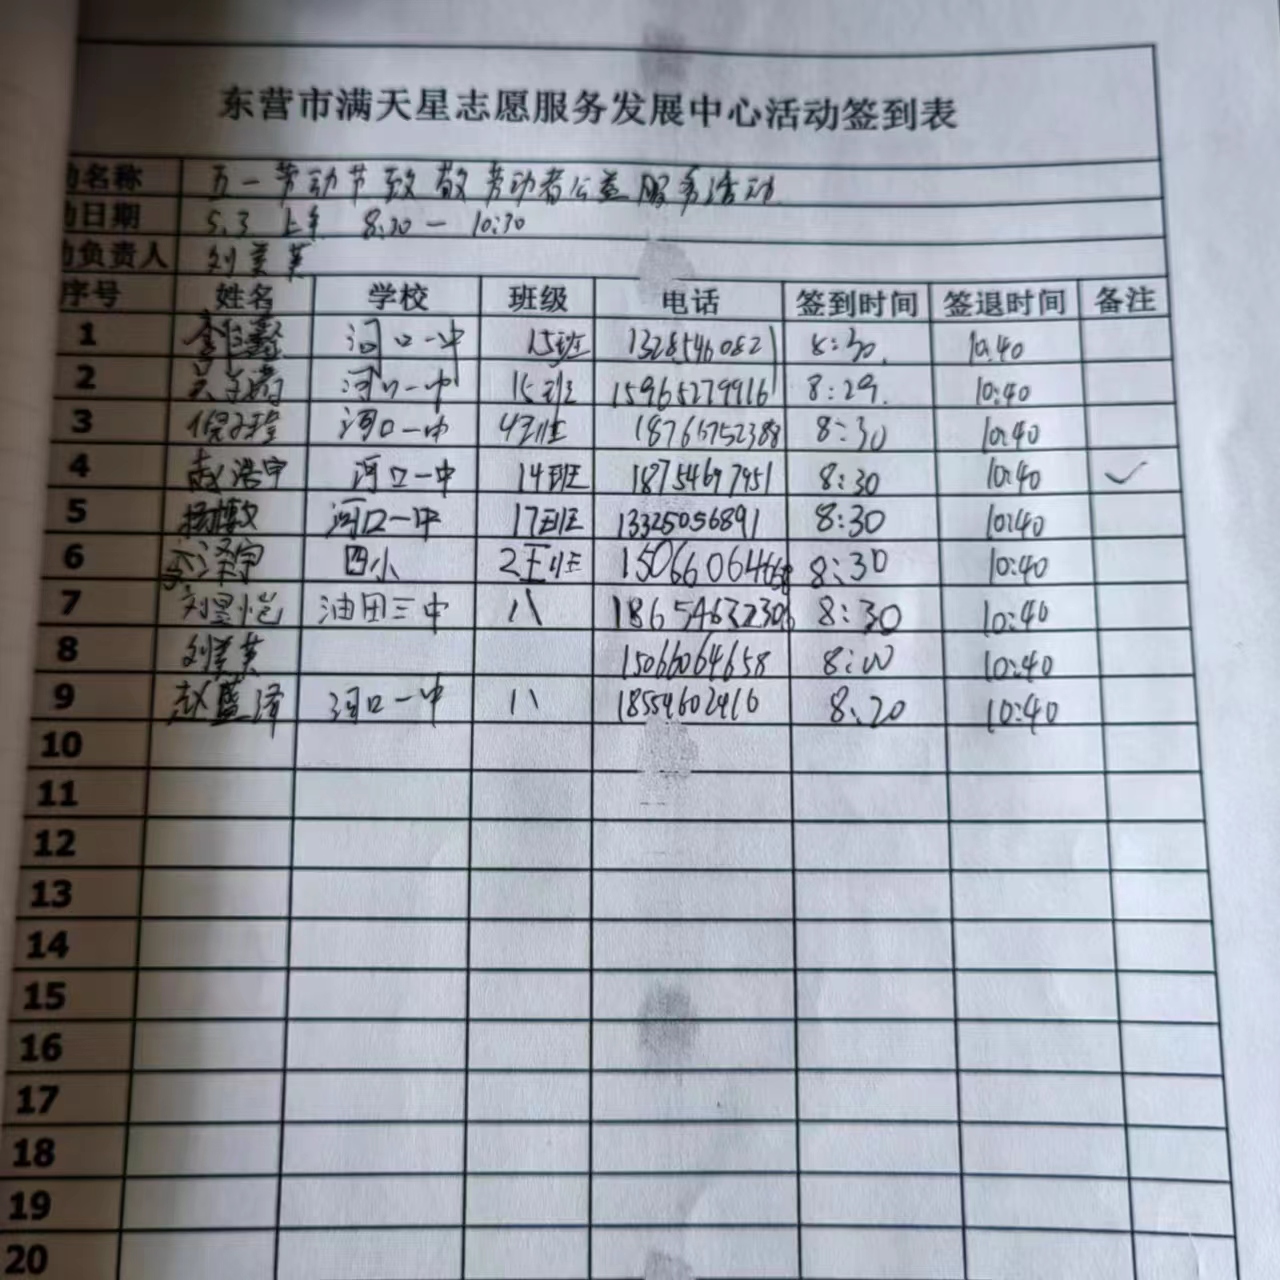 东营市满天星志愿服务发展中心活动签到表
名称 五一劳动节致敬劳动者公益服务活动
日期 5.3 上午 8:30-10:30
负责人 刘美英
序号 姓名 学校 班级 电话 签到时间 签退时间 备注
1 河口一中 15班 13285460821 8:30 10:40
2 河口一中 15班 15965279916 8:29 10:40
3 倪子瑄 河口一中 4班 18766752388 8:30 10:40
4 赵浩宇 河口一中 14班 18754697451 8:30 10:40 ✓
5 杨敏 河口一中 17班 13325056891 8:30 10:40
6 泽宇 四小 2.王班 8:30 10:40
7 刘昱恺 油田三中 八 18654632306 8:30 10:40
8 刘美英 15066064658 8:00 10:40
9 赵蓝泽 河口一中 八 18554602916 8:20 10:40
10
11
12
13
14
15
16
17
18
19
20